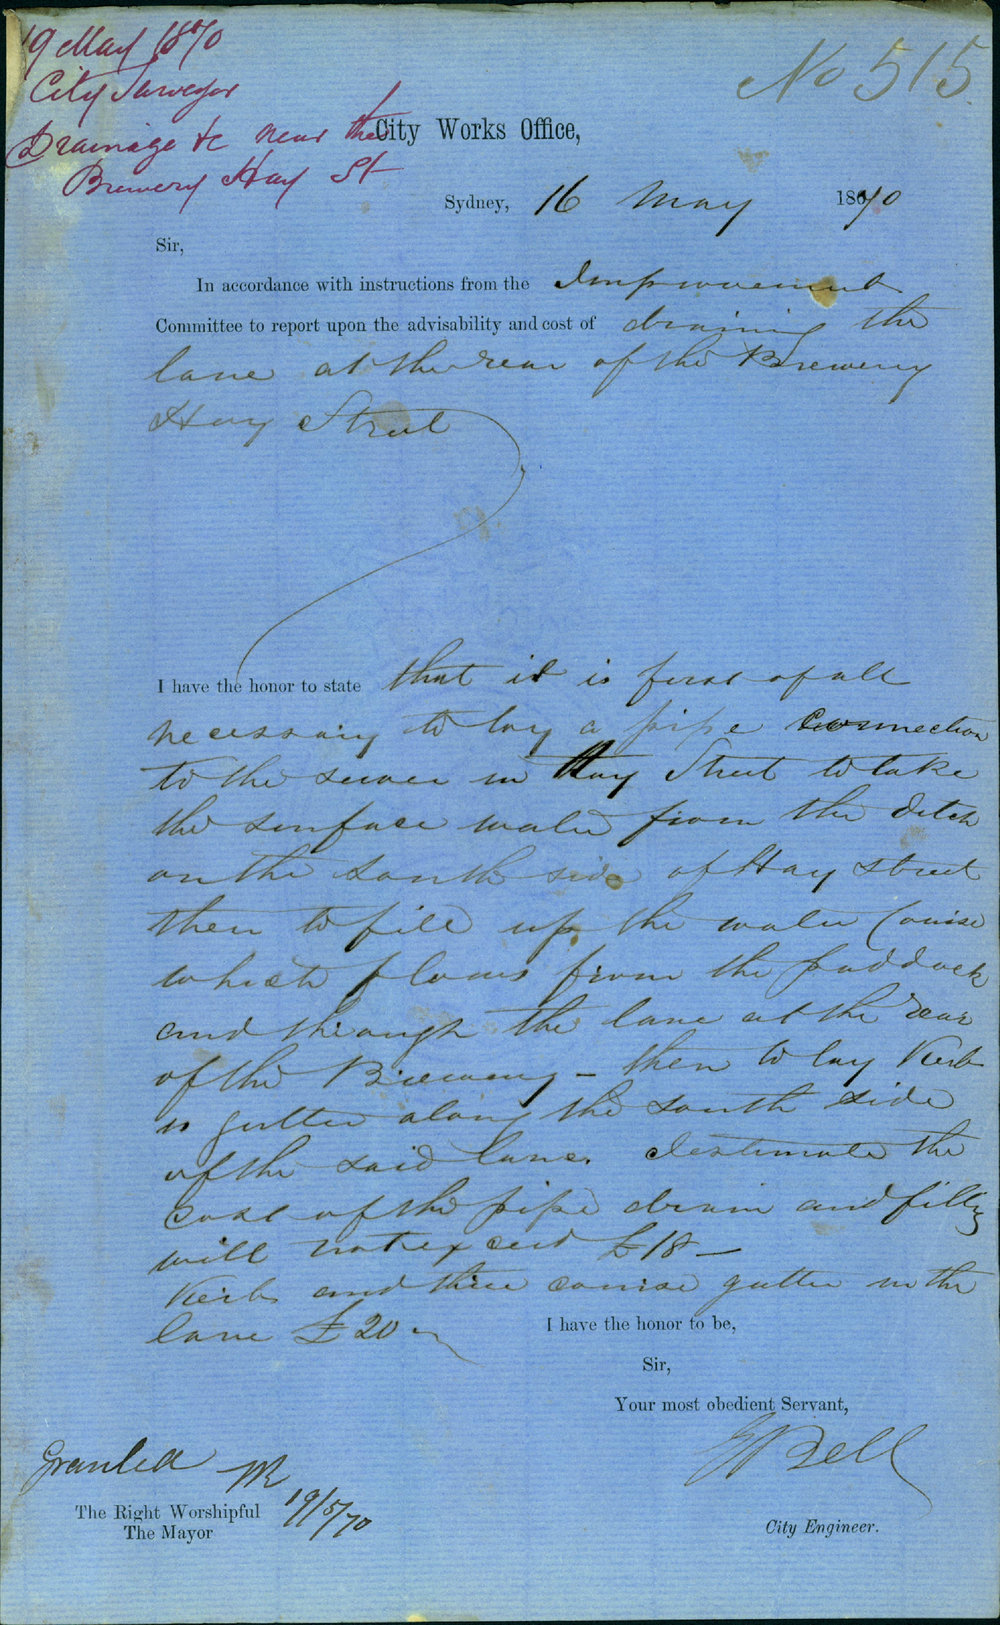 19 May 1870
City Surveyor
Drainage &c near the
Brewery Hay St
No 515
City Works Office,
Sydney, 16 May 1870
Sir,
In accordance with instructions from the Improvement
Committee to report upon the advisability and cost of draining the
lane at the rear of the Brewery
Hay Street
I have the honor to state that it is first of all
necessary to lay a pipe connection
to the sewer in Hay Street to take
the surface water from the ditch
on the south side of Hay street
then to fill up the water course
which flows from the paddock
and through the lane at the rear
of the Brewery - then to lay Kerb
& gutter along the south side
of the said lane. I estimate the
cost of the pipe drain and filling
will not exceed £18 -
Kerb and three course gutter in the
lane £20
I have the honor to be,
Sir,
Your most obedient Servant,
E Bell
City Engineer.
Granted
19/5/70
The Right Worshipful
The Mayor